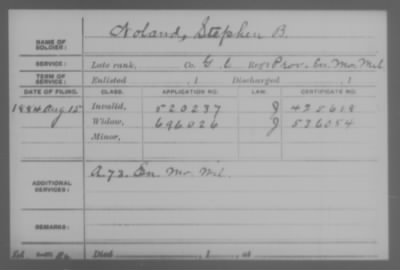 NAME OF SOLDIER: Noland, Stephen B.
SERVICE: Late rank, Co. G. Reg't Prov. En. Mo. Mil
TERM OF SERVICE: Enlisted , 1 Discharged , 1
DATE OF FILING. CLASS. APPLICATION NO. LAW. CERTIFICATE NO.
1884 Aug 15 Invalid, 520237 J
Widow, 696026 J 536054
Minor,
ADDITIONAL SERVICES: A. 72. En. Mo. Mil.
REMARKS:
Died , 1 , at